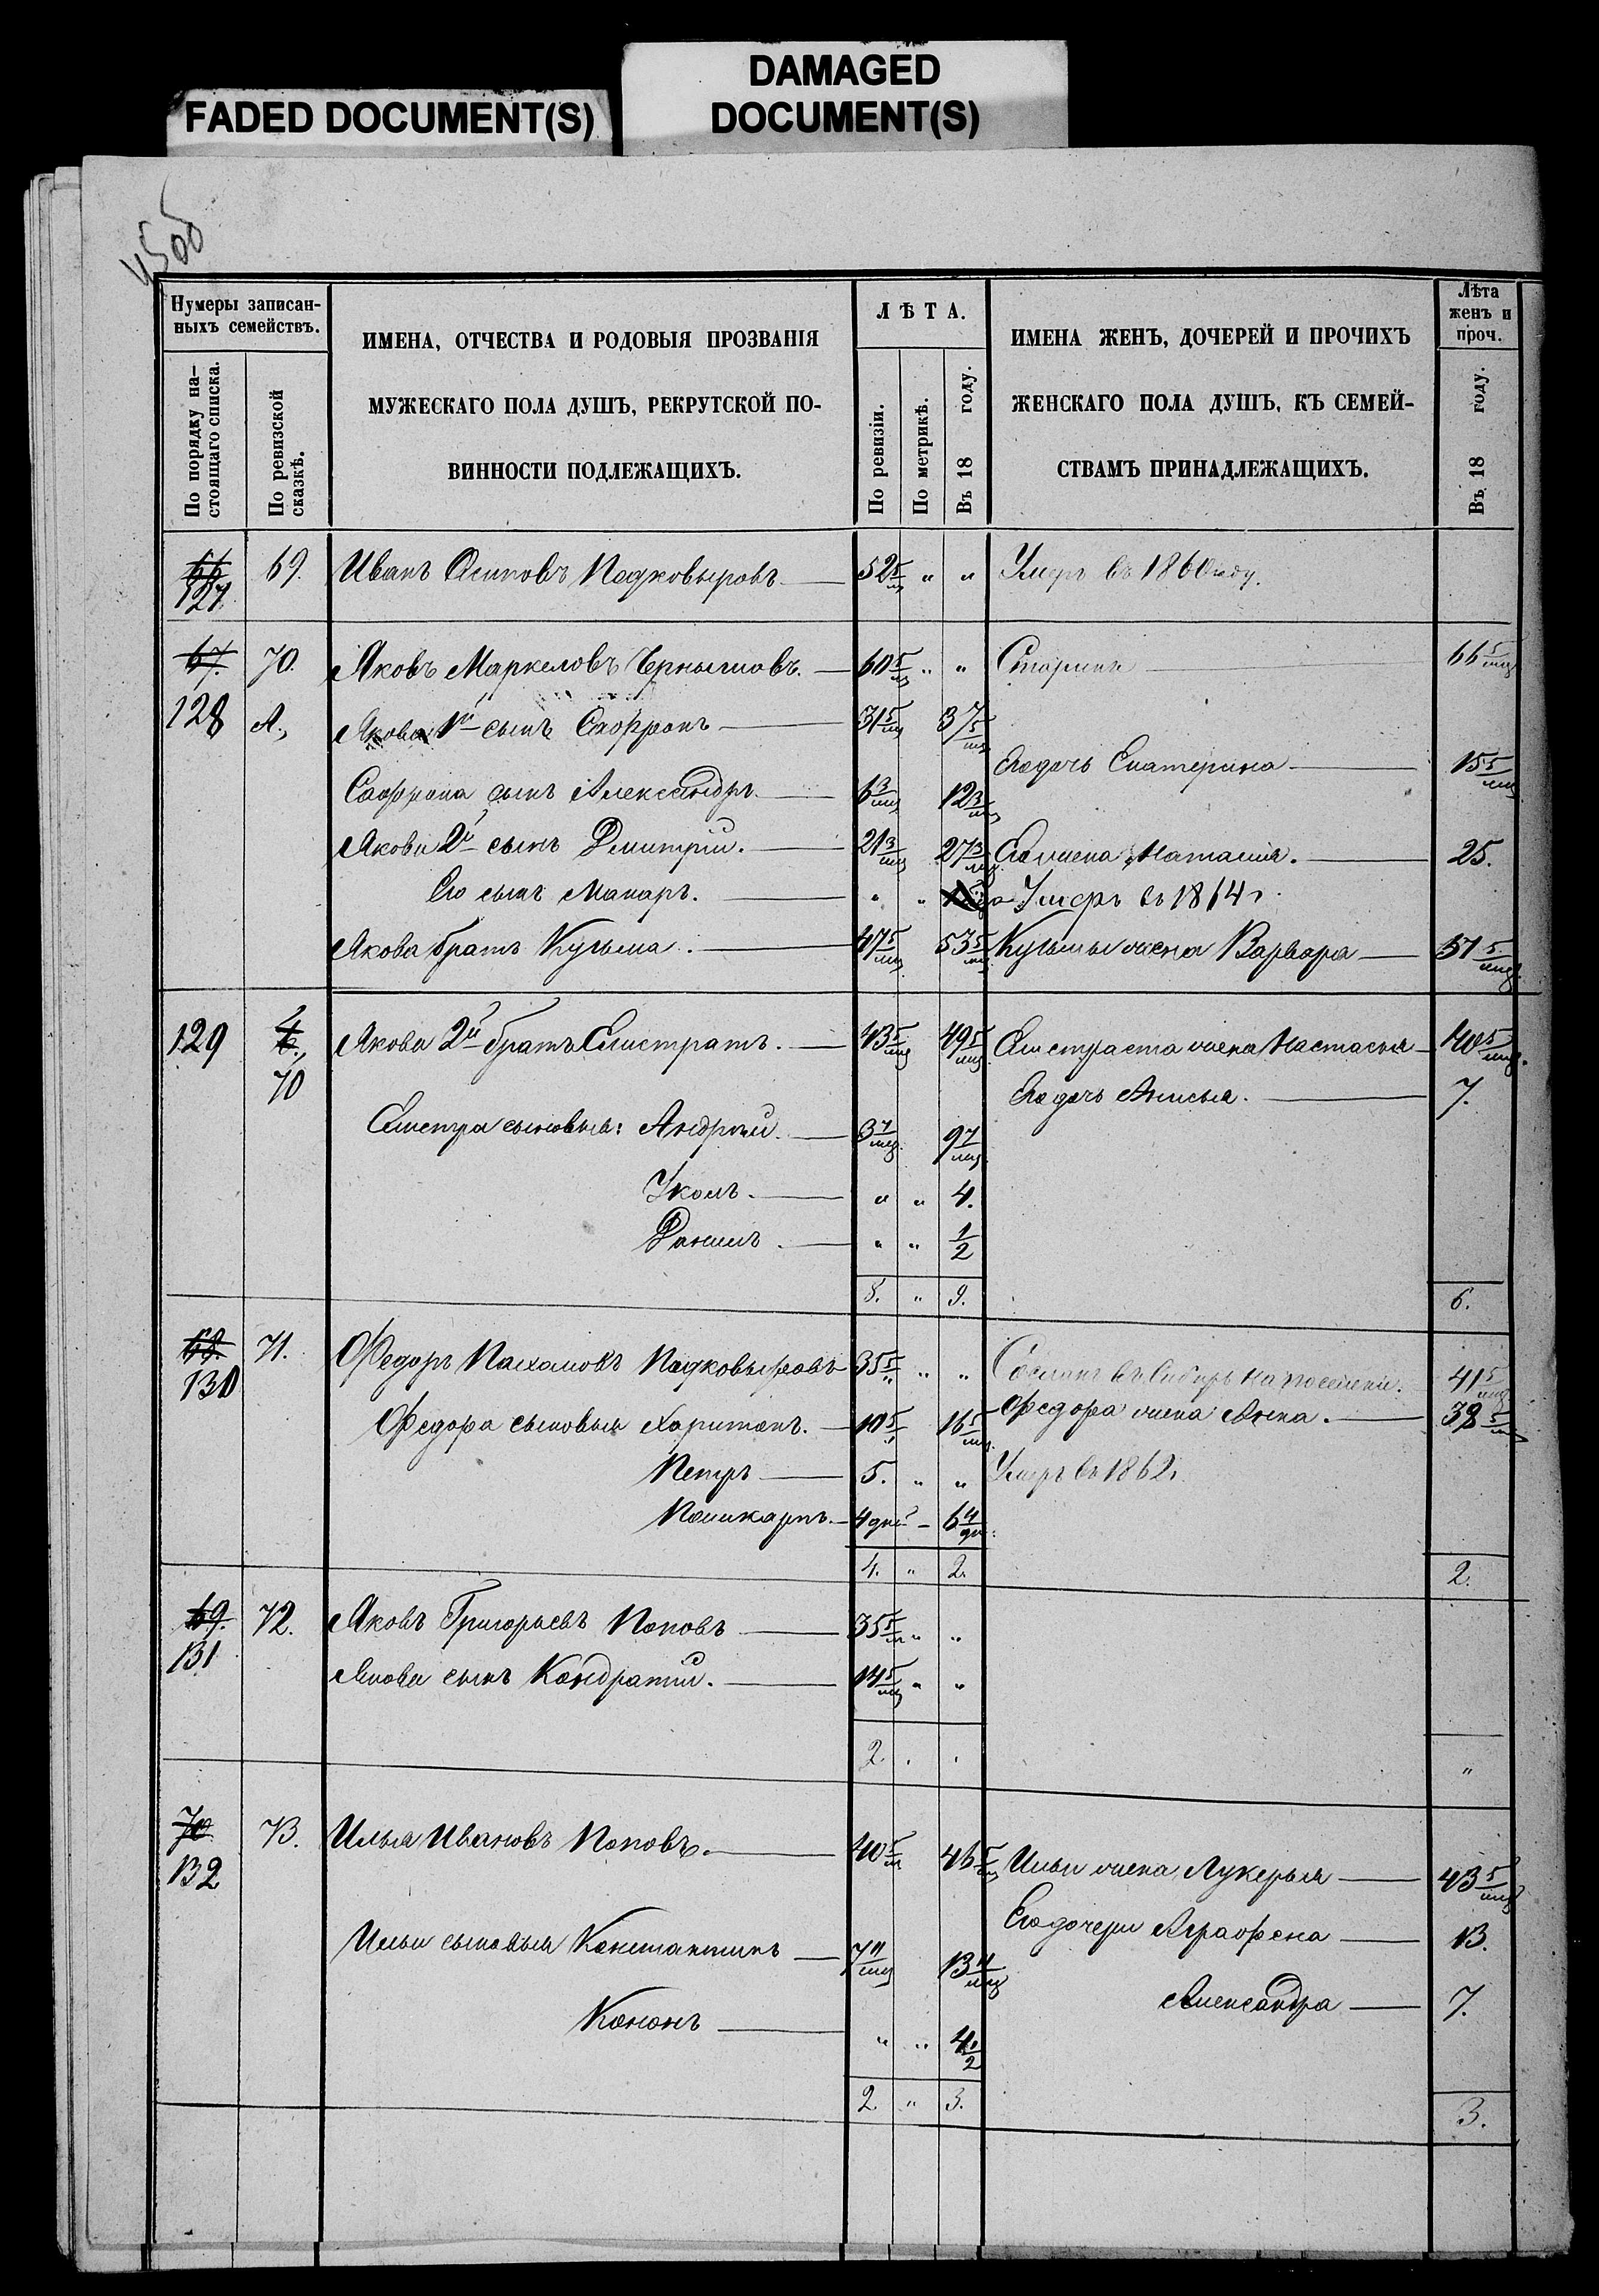 FADED DOCUMENT(S)
DAMAGED
DOCUMENT(S)
45об
Нумеры записан-
ныхъ семействъ.
По порядку на-
стоящаго списка.
По ревизской
сказкѣ.
ИМЕНА, ОТЧЕСТВА И РОДОВЫЯ ПРОЗВАНІЯ
МУЖЕСКАГО ПОЛА ДУШЪ, РЕКРУТСКОЙ ПО-
ВИННОСТИ ПОДЛЕЖАЩИХЪ.
ЛѢТА.
По ревизіи.
По метрикѣ.
Въ 18 году.
ИМЕНА ЖЕНЪ, ДОЧЕРЕЙ И ПРОЧИХЪ
ЖЕНСКАГО ПОЛА ДУШЪ, КЪ СЕМЕЙ-
СТВАМЪ ПРИНАДЛЕЖАЩИХЪ.
Лѣта
женъ и
проч.
Въ 18 году.
66 127. 69. Иванъ Осиповъ Подковыровъ 52 5/м " " Умеръ въ 1860 году.
67. 70. Яковъ Маркеловъ 60 5/м " " 66 5/мц
128 А., Якова 1й сынъ Софронъ 31 5/мц 37 5/мц
Его дочь Екатерина 15 5/мц
Софрона сынъ Александръ 6 3/мц 12 3/мц
Якова 2й сынъ Дмитрій. 21 3/мц 27 3/мц Его жена Наталья. 25.
Его сынъ Макаръ. " " Умеръ въ 1864 г.
Якова братъ Кузьма. 47 5/мц 53 5/мц Кузьмы жена Варвара 51 5/мц
129 70 Якова 2й братъ Елистратъ. 43 5/мц 49 5/мц Елистрата жена Настасья 40 5/мц.
Его дочь Анисья. 7.
Елистра сыновья: Андрей. 3 7/мц 9 7/мц
" " 4.
Данилъ. " " 1/2
8. " 9. 6.
68. 130 71. Федоръ Пахомовъ Подковыровъ 35 5/" " " Сосланъ въ Сибирь на поселеніе. 41 5/мц
Федора сыновья Харитонъ. 10 5/" 16 5/мц Федора жена Анна. 38 5/м
Петръ 5. " " Умеръ въ 1862 г.
Поликарпъ. 4 дней - 6 4/дн.
4. " 2. 2.
69. 131 72. Яковъ Григорьевъ Поповъ 35 5/м " "
Якова сынъ Кондратій. 14 5/мц " "
2. " " "
70 132 73. Илья Ивановъ Поповъ. 40 5/м 46 5/мц Ильи жена Лукерья 43 5/мц
Ильи сыновья Константинъ 7 11/мц 13 11/мц Его дочери Аграфена 13.
Александра 7.
Кононъ " " 4 1/2
2. " 3. 3.